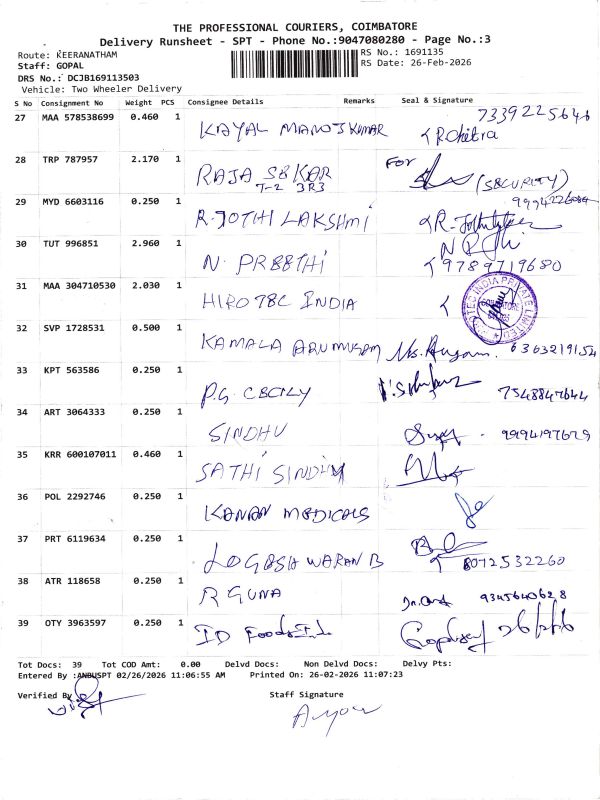 THE PROFESSIONAL COURIERS, COIMBATORE
Delivery Runsheet - SPT - Phone No.:9047080280 - Page No.:3
Route: KEERANATHAM
RS No.: 1691135
Staff: GOPAL
RS Date: 26-Feb-2026
DRS No.: DCJB169113503
Vehicle: Two Wheeler Delivery
S No Consignment No Weight PCS Consignee Details Remarks Seal & Signature
27 MAA 578538699 0.460 1 KAYAL MANOJKUMAR 7339225646
28 TRP 787957 2.170 1 RAJA SEKAR FOR (SECURITY)
T-2 3R3
29 MYD 6603116 0.250 1 R. JOTHI LAKSHMI
30 TUT 996851 2.960 1 N. PREETHI 9789719680
31 MAA 304710530 2.030 1 INDIA
32 SVP 1728531 0.500 1 KAMALA ARUMUGAM 6363219154
33 KPT 563586 0.250 1 P.G. CECILY 7548847644
34 ART 3064333 0.250 1 SINDHU
35 KRR 600107011 0.460 1 SATHI SINDHU
36 POL 2292746 0.250 1 KANAN MEDICALS
37 PRT 6119634 0.250 1 LOGESHWARAN B 8072532260
38 ATR 118658 0.250 1 R GUNA 9345640628
39 OTY 3963597 0.250 1 ID Foods 26/2/26
Tot Docs: 39 Tot COD Amt: 0.00 Delvd Docs: Non Delvd Docs: Delvy Pts:
Entered By :ANBUSPT 02/26/2026 11:06:55 AM Printed On: 26-02-2026 11:07:23
Verified By
Staff Signature